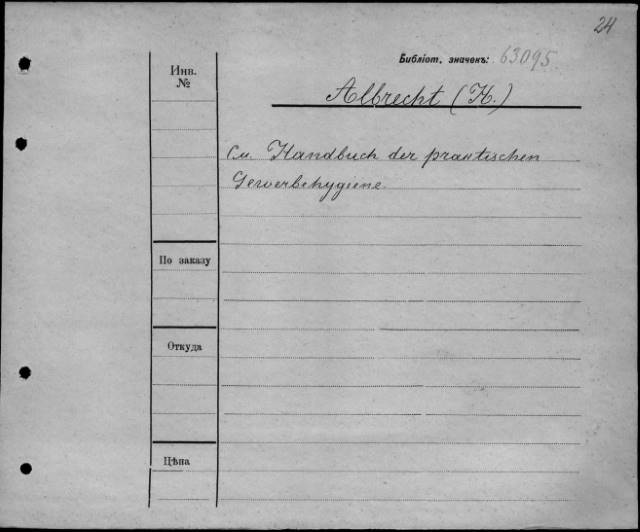 24
Библіот. значекъ: 63095
Инв.
№
Albrecht (H.)
См. Handbuch der praktischen
Gewerbehygiene.
По заказу
Откуда
Цѣна